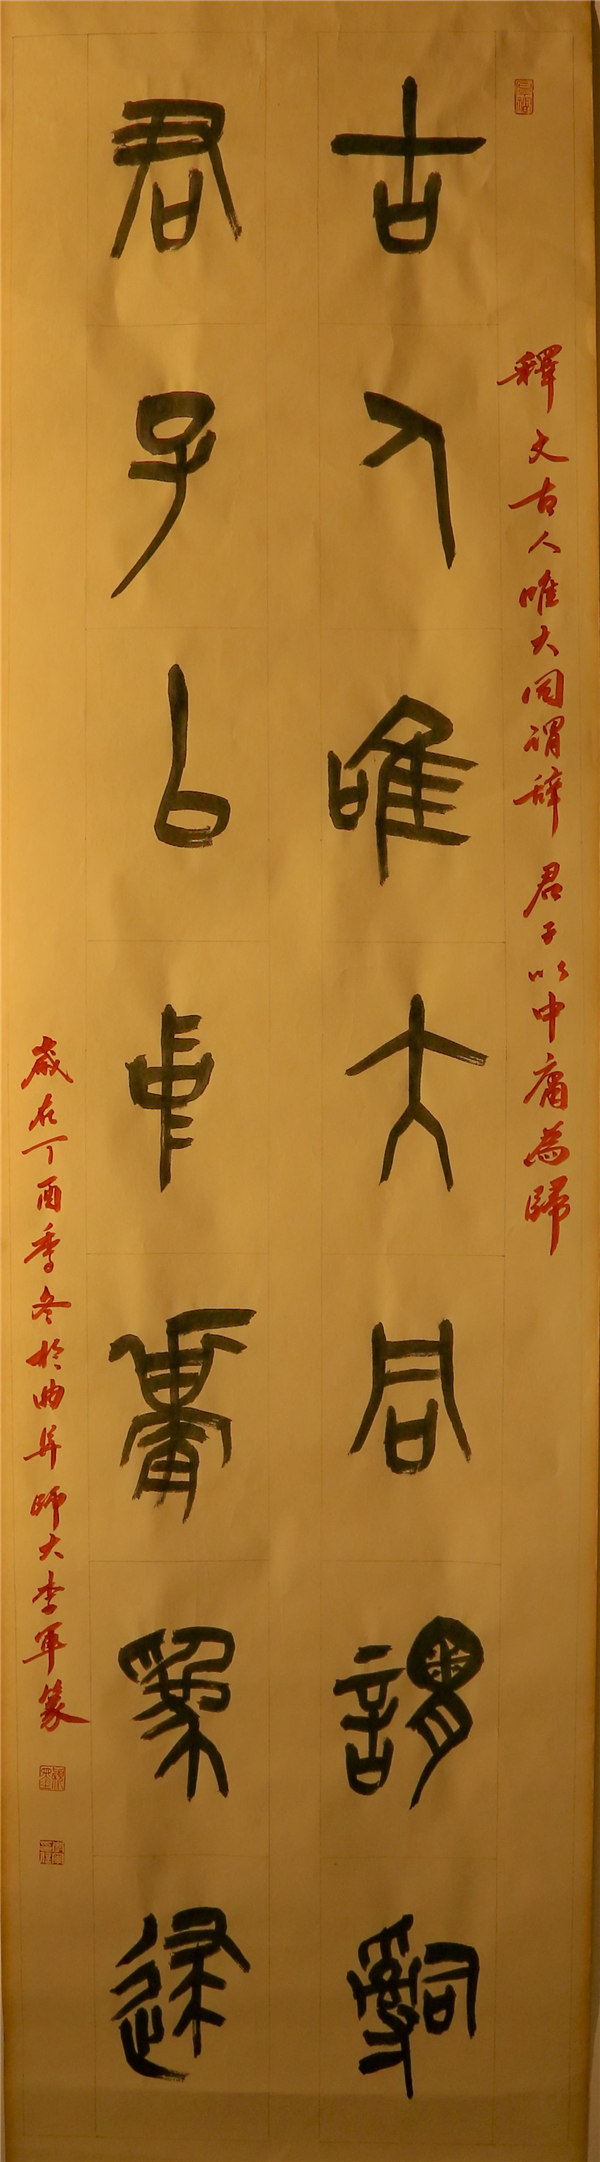 釋文古人唯大同謂辞 君子以中庸為歸
古人唯大同謂辭
君子以中庸為歸
歲在丁酉季冬於曲阜師大李軍篆